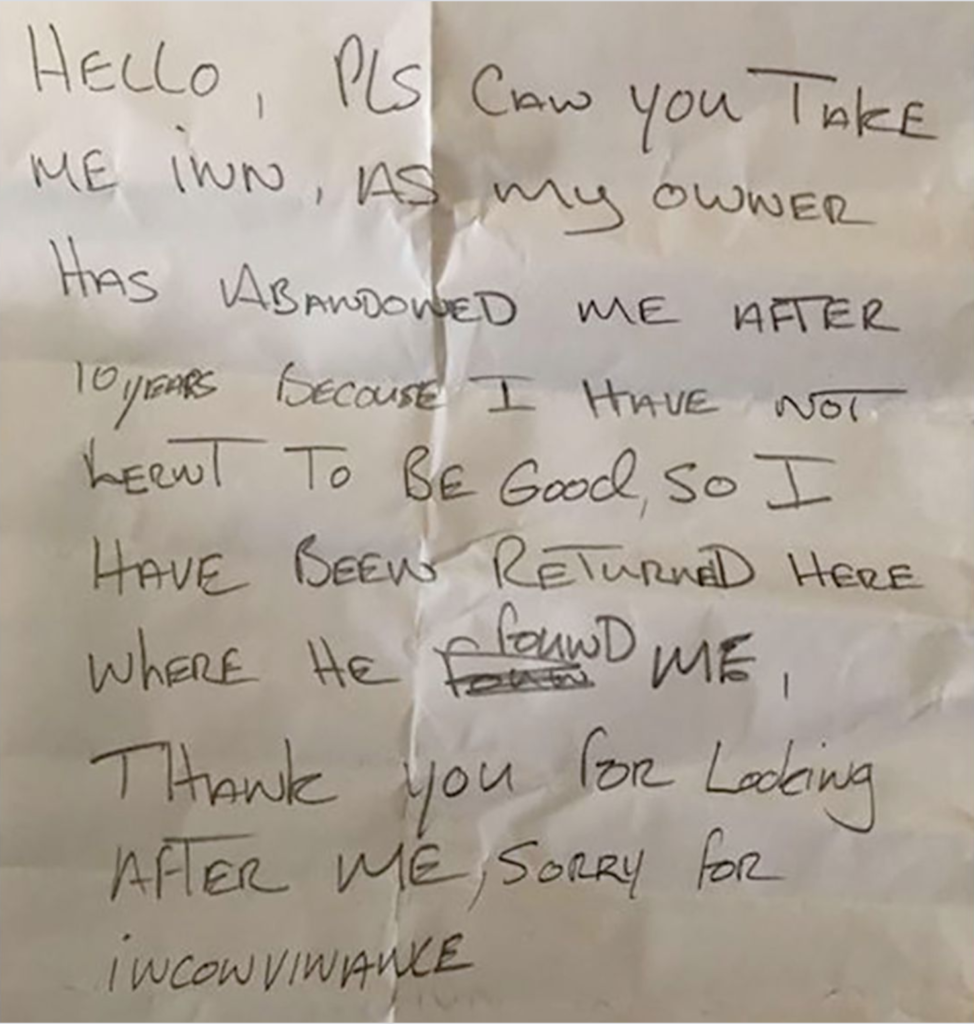 HELLO, PLS CAN YOU TAKE
ME INN, AS MY OWNER
HAS ABANDONED ME AFTER
10 YEARS BECOUSE I HAVE NOT
LERNT TO BE Good, SO I
HAVE BEEN RETURNED HERE
WhERE HE foUND ME,
THANK you foR Looking
AFTER ME, SORRY foR
iNCONVINANCE